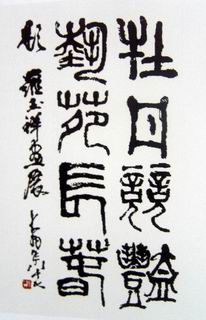 牡丹競豔
藝苑長春
羅玉祥畫展